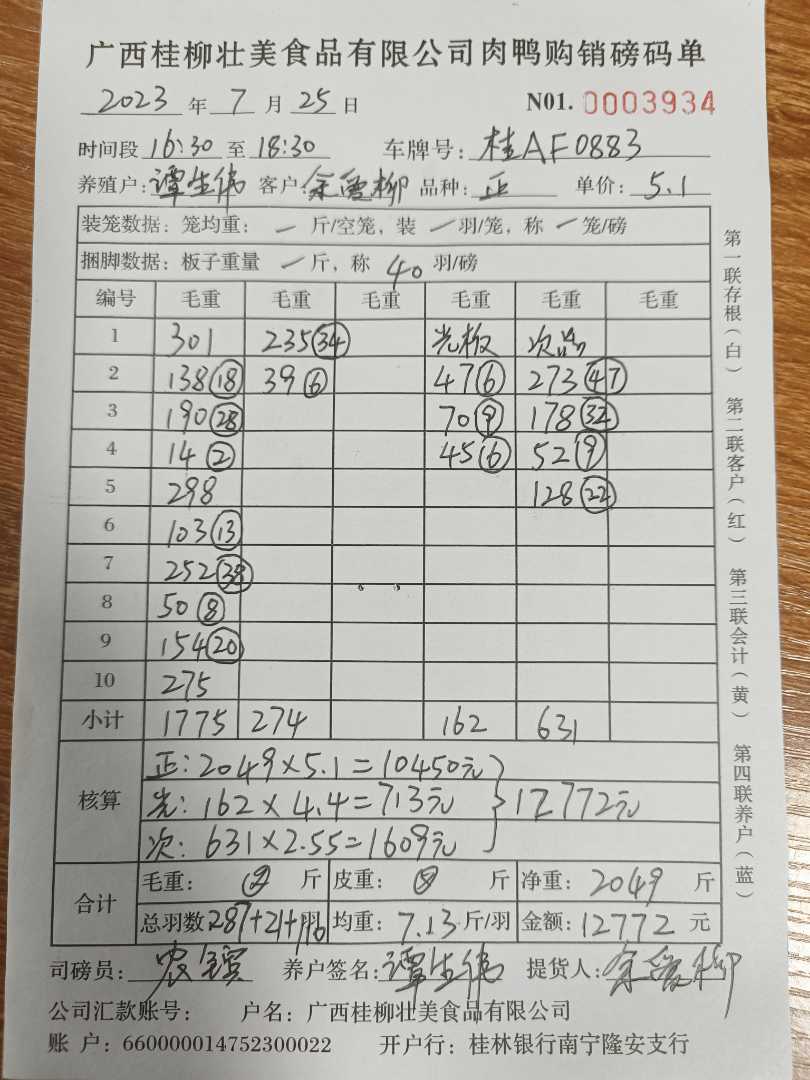 广西桂柳壮美食品有限公司肉鸭购销磅码单
2023 年 7 月 25 日 N01. 0003934
时间段 16:30 至 18:30 车牌号: 桂AF0883
养殖户: 谭生伟 客户: 余雪柳 品种: 正 单价: 5.1
装笼数据: 笼均重: 一 斤/空笼, 装 一 羽/笼, 称 一 笼/磅
捆脚数据: 板子重量 一 斤, 称 40 羽/磅
编号 毛重 毛重 毛重 毛重 毛重 毛重
1 301 235(34) 光板 次品
2 138(18) 39(6) 47(6) 273(47)
3 190(28) 70(9) 178(32)
4 14(2) 45(6) 52(9)
5 298 128(22)
6 103(13)
7 252(38)
8 50(8)
9 154(20)
10 275
小计 1775 274 162 631
核算
正: 2049×5.1=10450元
光: 162×4.4=713元 } 12772元
次: 631×2.55=1609元
合计
毛重: 斤 皮重: 斤 净重: 2049 斤
总羽数 287+21+110 羽 均重: 7.13 斤/羽 金额: 12772 元
司磅员: 农 养户签名: 谭生伟 提货人: 余雪柳
公司汇款账号: 户名: 广西桂柳壮美食品有限公司
账 户: 660000014752300022 开户行: 桂林银行南宁隆安支行
第一联存根(白)
第二联客户(红)
第三联会计(黄)
第四联养户(蓝)